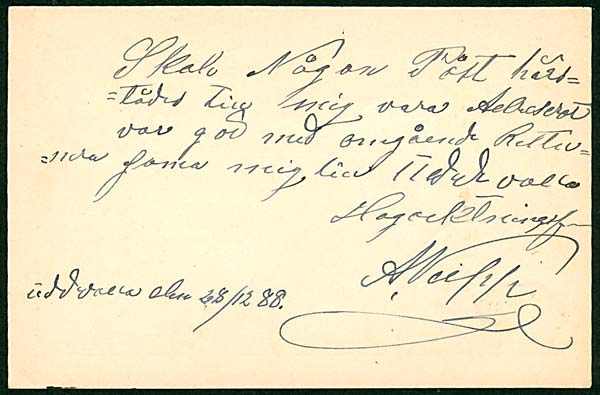 Skulv Någon Post härs=
=tädes till mig vara Adresserat
var god med omgående Retur=
=nera sama mig till Uddevalla
Högacktningsf
uddvalla den 28/12 88.